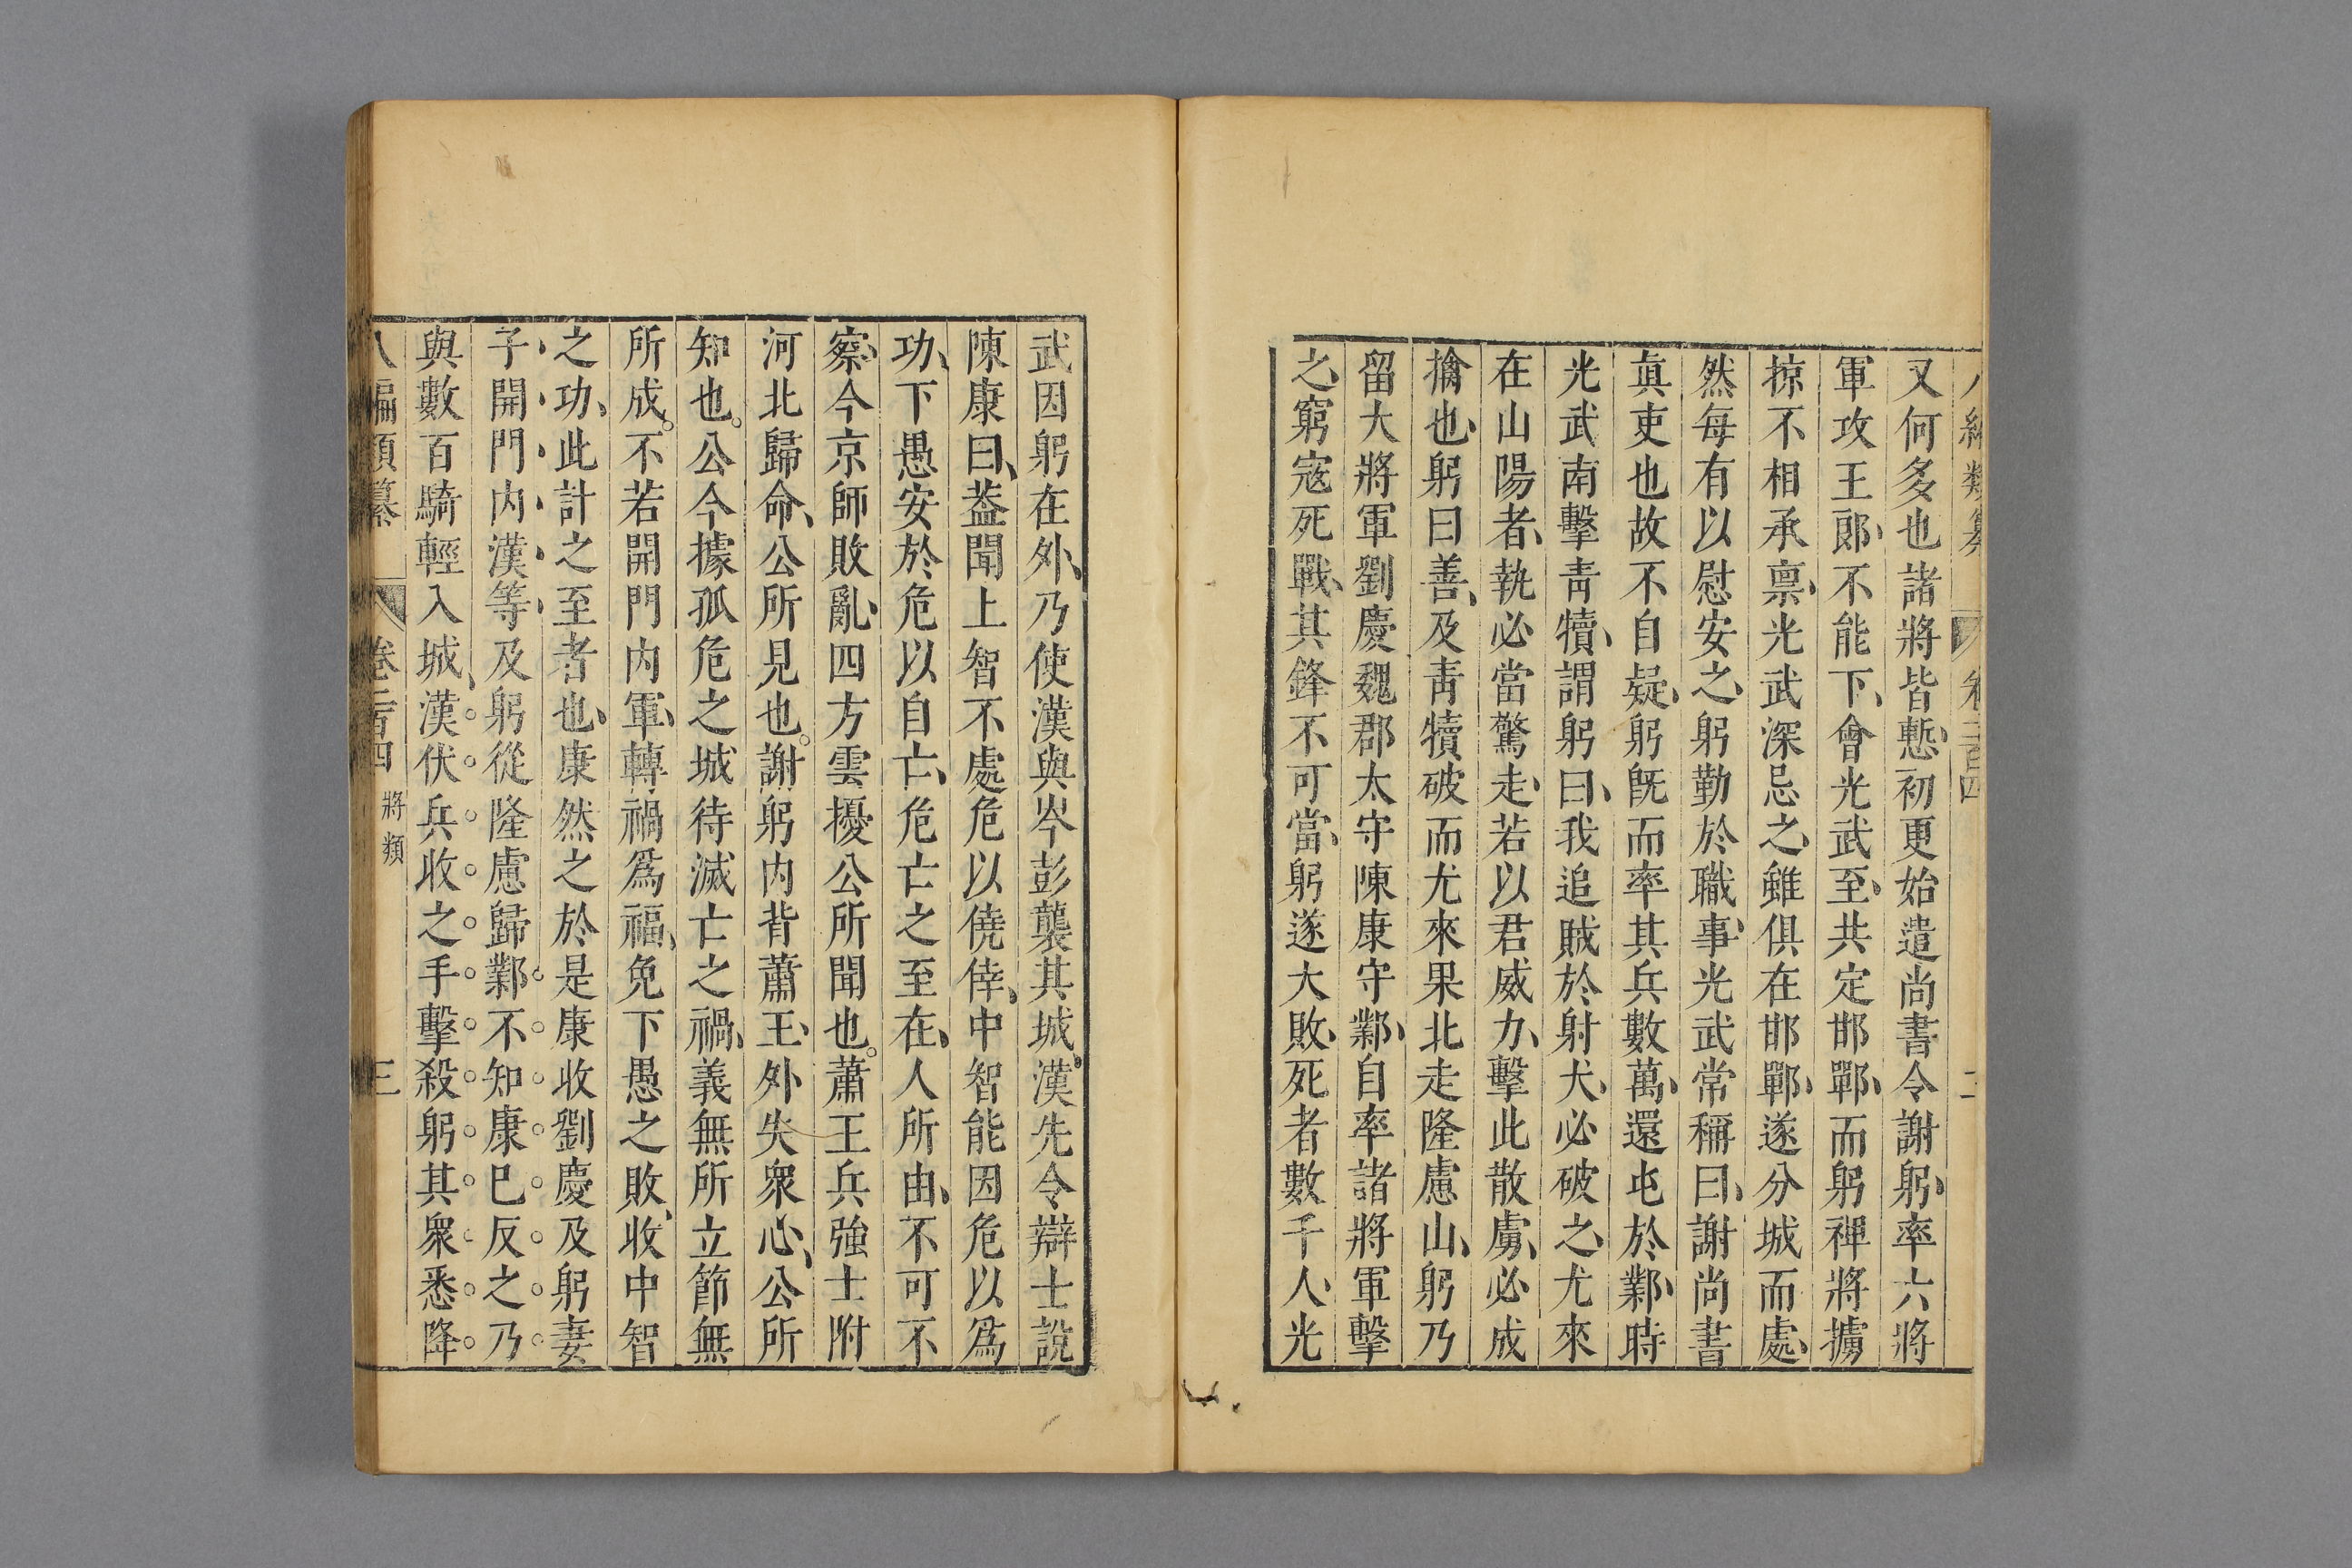 又何多也諸將皆慙初更始遣尚書令謝躬率六將
軍攻王郎不能下會光武至共定邯鄲而躬裨將擄
掠不相承禀光武深忌之雖俱在邯鄲遂分城而處
然每有以慰安之躬勤於職事光武常稱曰謝尚書
真吏也故不自疑躬既而率其兵數萬還屯於鄴時
光武南擊青犢謂躬曰我追賊於射犬必破之尤來
在山陽者執必當驚走若以君威力擊此散虜必成
擒也躬曰善及青犢破而尤來果北走隆慮山躬乃
留大將軍劉慶魏郡太守陳康守鄴自率諸將軍擊
之窮寇死戰其鋒不可當躬遂大敗死者數千人光
武因躬在外乃使漢與岑彭襲其城漢先令辯士說
陳康曰葢聞上智不處危以僥倖中智能因危以爲
功下愚安於危以自亡危亡之至在人所由不可不
察今京師敗亂四方雲擾公所聞也蕭王兵強士附
河北歸命公所見也謝躬内背蕭王外失衆心公所
知也公今據孤危之城待滅亡之禍義無所立節無
所成不若開門内軍轉禍爲福免下愚之敗收中智
之功此計之至者也康然之於是康收劉慶及躬妻
子開門内漢等及躬從隆慮歸鄴不知康已反之乃
與數百騎輕入城漢伏兵收之手擊殺躬其衆悉降
八編類纂 卷二百四 將類 三